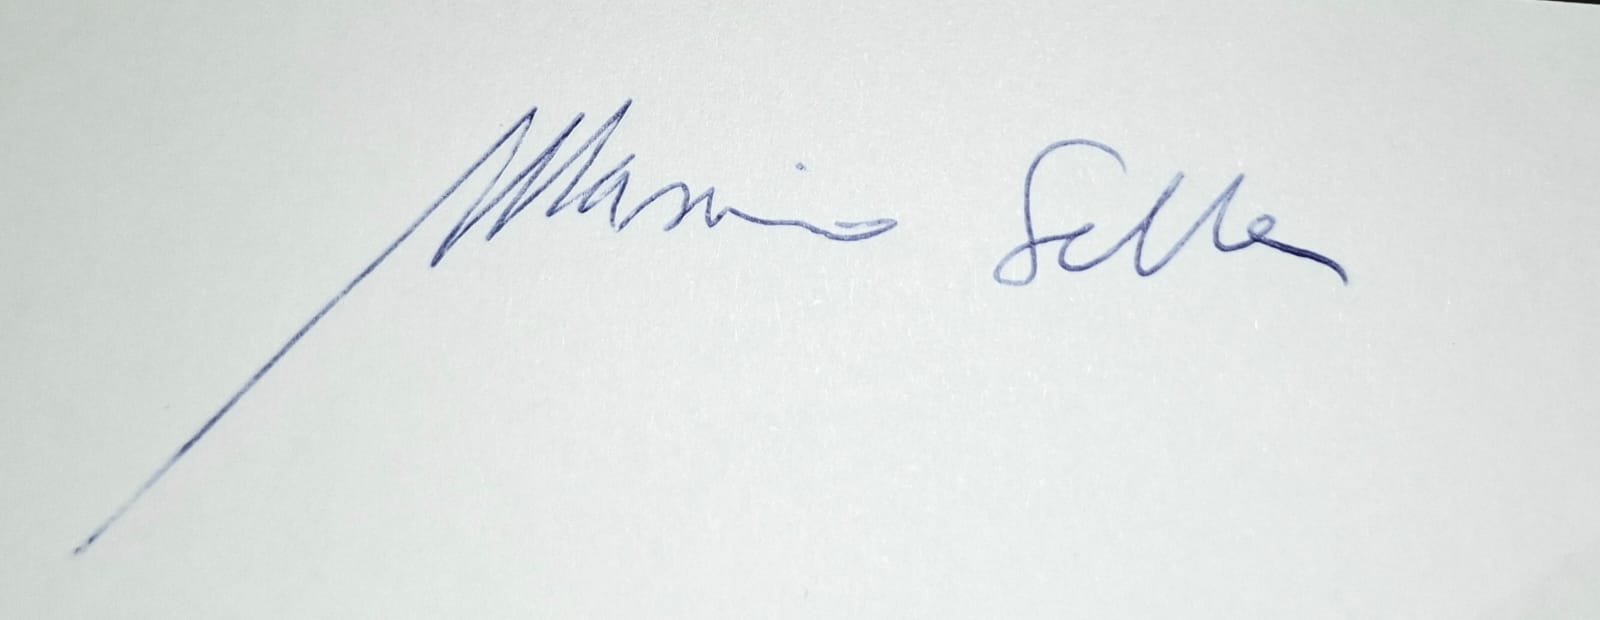 Massimo Sella